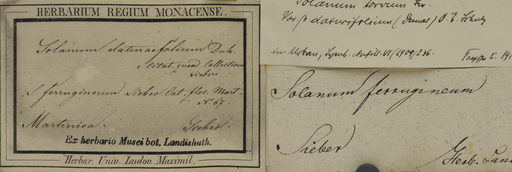 HERBARIUM REGIUM MONACENSE.
Solanum daturaefolium Dun.
Sieber
S. ferrugineum Sieber fl. Mart.
N. 67.
Martinica. Sieber.
Ex herbario Musei bot. Landishuth.
Herbar. Univ. Ludov. Maximil.
Solanum torvum Sw.
var. daturifolium (Dunal) O. E. Schulz
in Urban, Symb. Antill. VI/1909/236.
Solanum ferrugineum
Sieber
Herb.